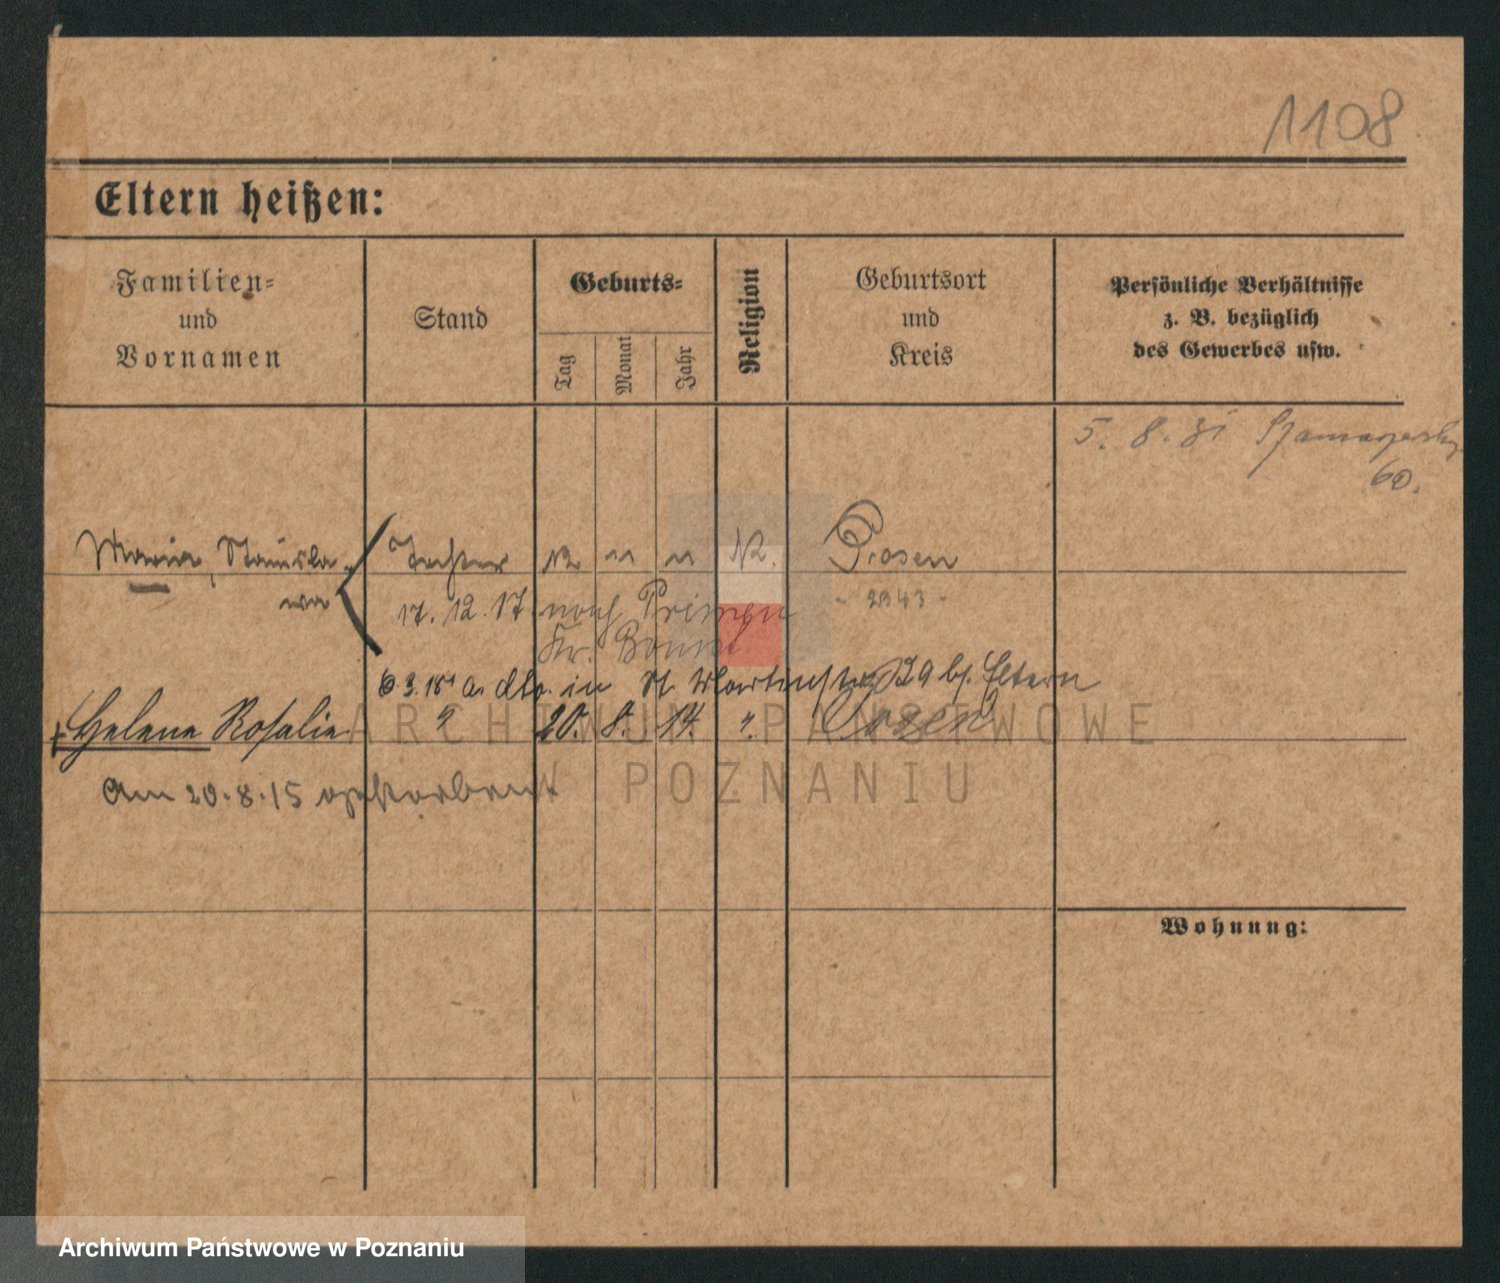 1108
Eltern heißen:
Familien-
und
Vornamen
Stand
Geburts-
Tag
Monat
Jahr
Religion
Geburtsort
und
Kreis
Persönliche Verhältnisse
z. B. bezüglich
des Gewerbes usw.
5. 8.
60.
Maria, Stanisla
wa
Tochter
Posen
17. 12. 17. nach Primen
Kr. Bomst
2943
in St. Martinstr. 29 bf. Eltern
Helene Rosalie " 20. 8. 14. " Posen
Am 20.8.15
Wohnung:
ARCHIWUM PAŃSTWOWE
W POZNANIU
Archiwum Państwowe w Poznaniu